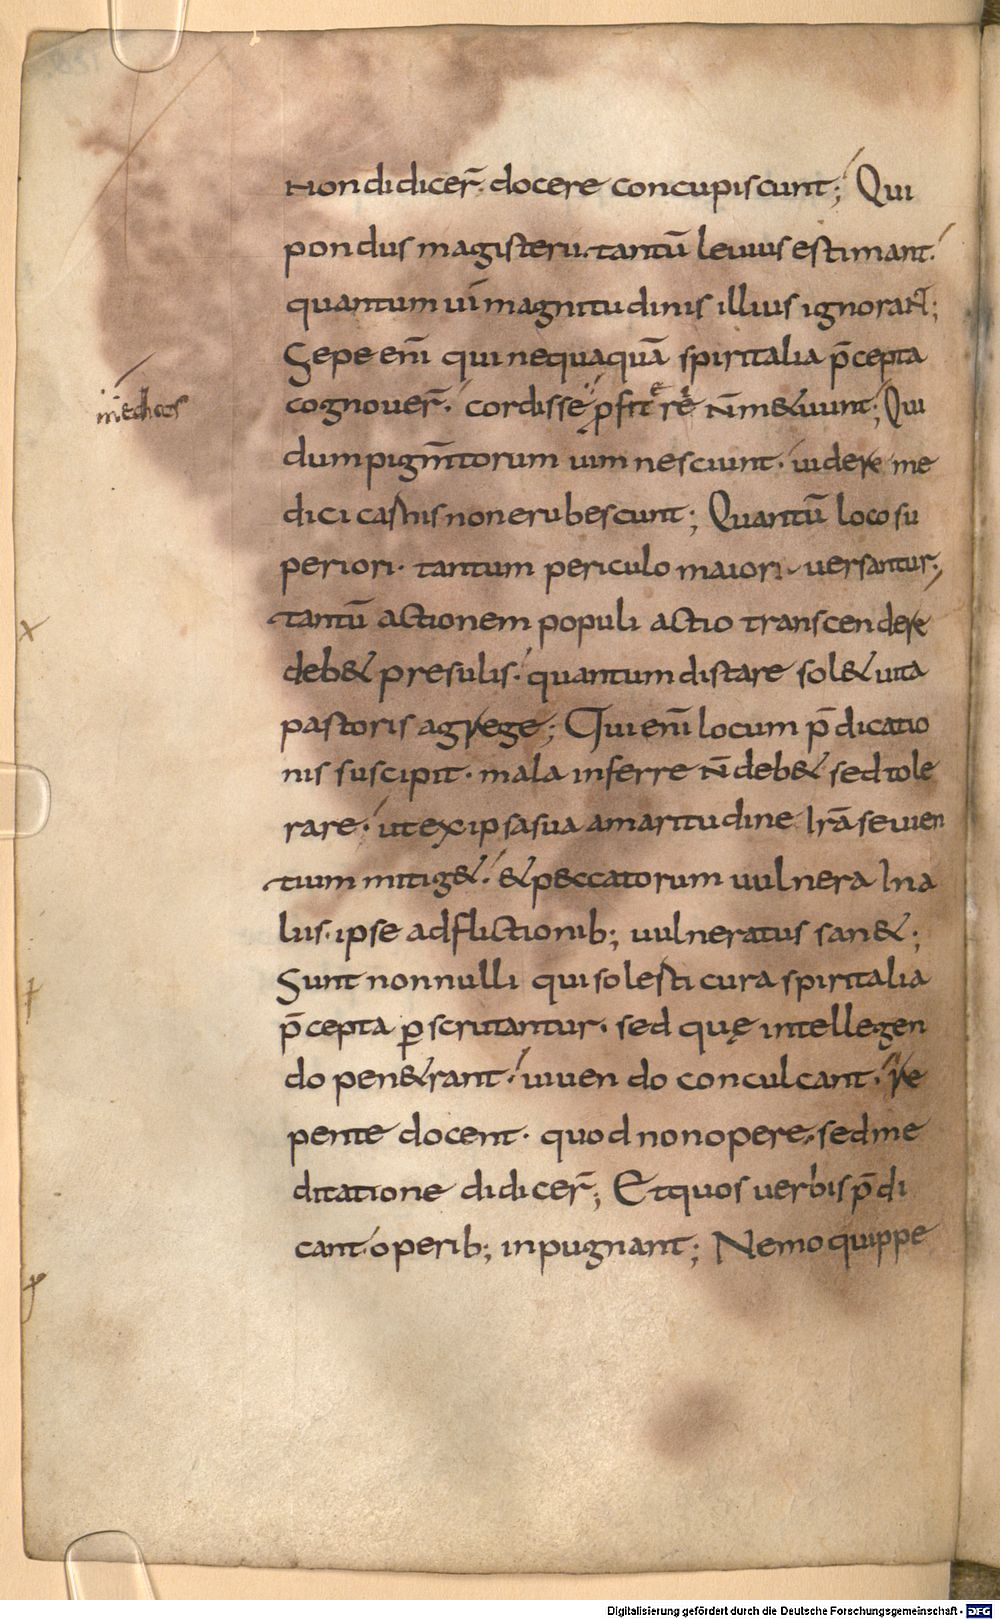 Non didicer̄· docere concupiscunt; Qui
pondus magisterii· tantū leuius estimant·
quantum uī magnitudinis illius ignorant;
Sepe enī qui nequaquā spiritalia p̄cepta
cognouer̄· cordis se ꝓfit&re n̄ m&uunt; Qui
medicos
dum pigm̄torum uim nesciunt· uidere me
dici carnis non erubescunt; Quantū loco su
periori· tantum periculo maiori uersantur·
tantū actionem populi actio transcendere
deb& presulis· quantum distare sol& uita
pastoris a grege; Qui enī locum p̄dicatio
nis suscipit· mala inferre n̄ deb& sed tole
rare· ut ex ipsa sua amaritudine irā seuien
tium mitig&· & peccatorum uulnera In a
liis· ipse adflictionib; uulneratus san&;
Sunt nonnulli qui solesti cura spiritalia
p̄cepta ꝑscrutantur· sed quę intellegen
do pen&rant· uiuendo conculcant· re
pente docent· quod non opere· sed me
ditatione didicer̄; Et quos uerbis p̄di
cant· operib; inpugnant; Nemo quippe
Digitalisierung gefördert durch die Deutsche Forschungsgemeinschaft - DFG